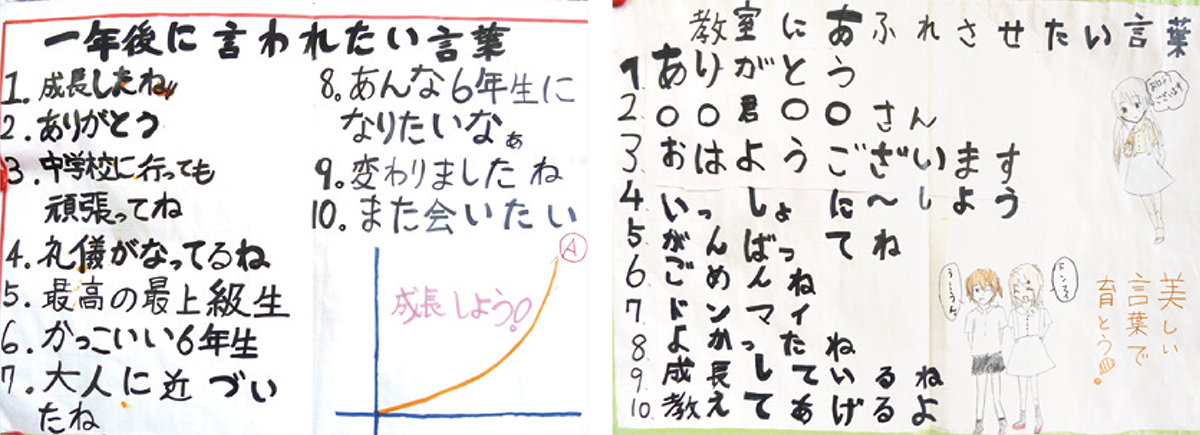 一年後に言われたい言葉
1. 成長したね!!
2. ありがとう
3. 中学校に行っても
頑張ってね
4. 礼儀がなってるね
5. 最高の最上級生
6. かっこいい6年生
7. 大人に近づい
たね
8. あんな6年生に
なりたいなぁ
9. 変わりましたね
10. また会いたい
A
成長しよう!
教室にあふれさせたい言葉
1. ありがとう
2. ○○君○○さん
3. おはようございます
4. いっしょに〜しよう
5. がんばってね
6. ごめんね
7. ドンマイ
8. よかったね
9. 成長しているね
10. 教えてあげるよ
おはよう
ございます
ドンマイ
美しい
言葉で
育とう!